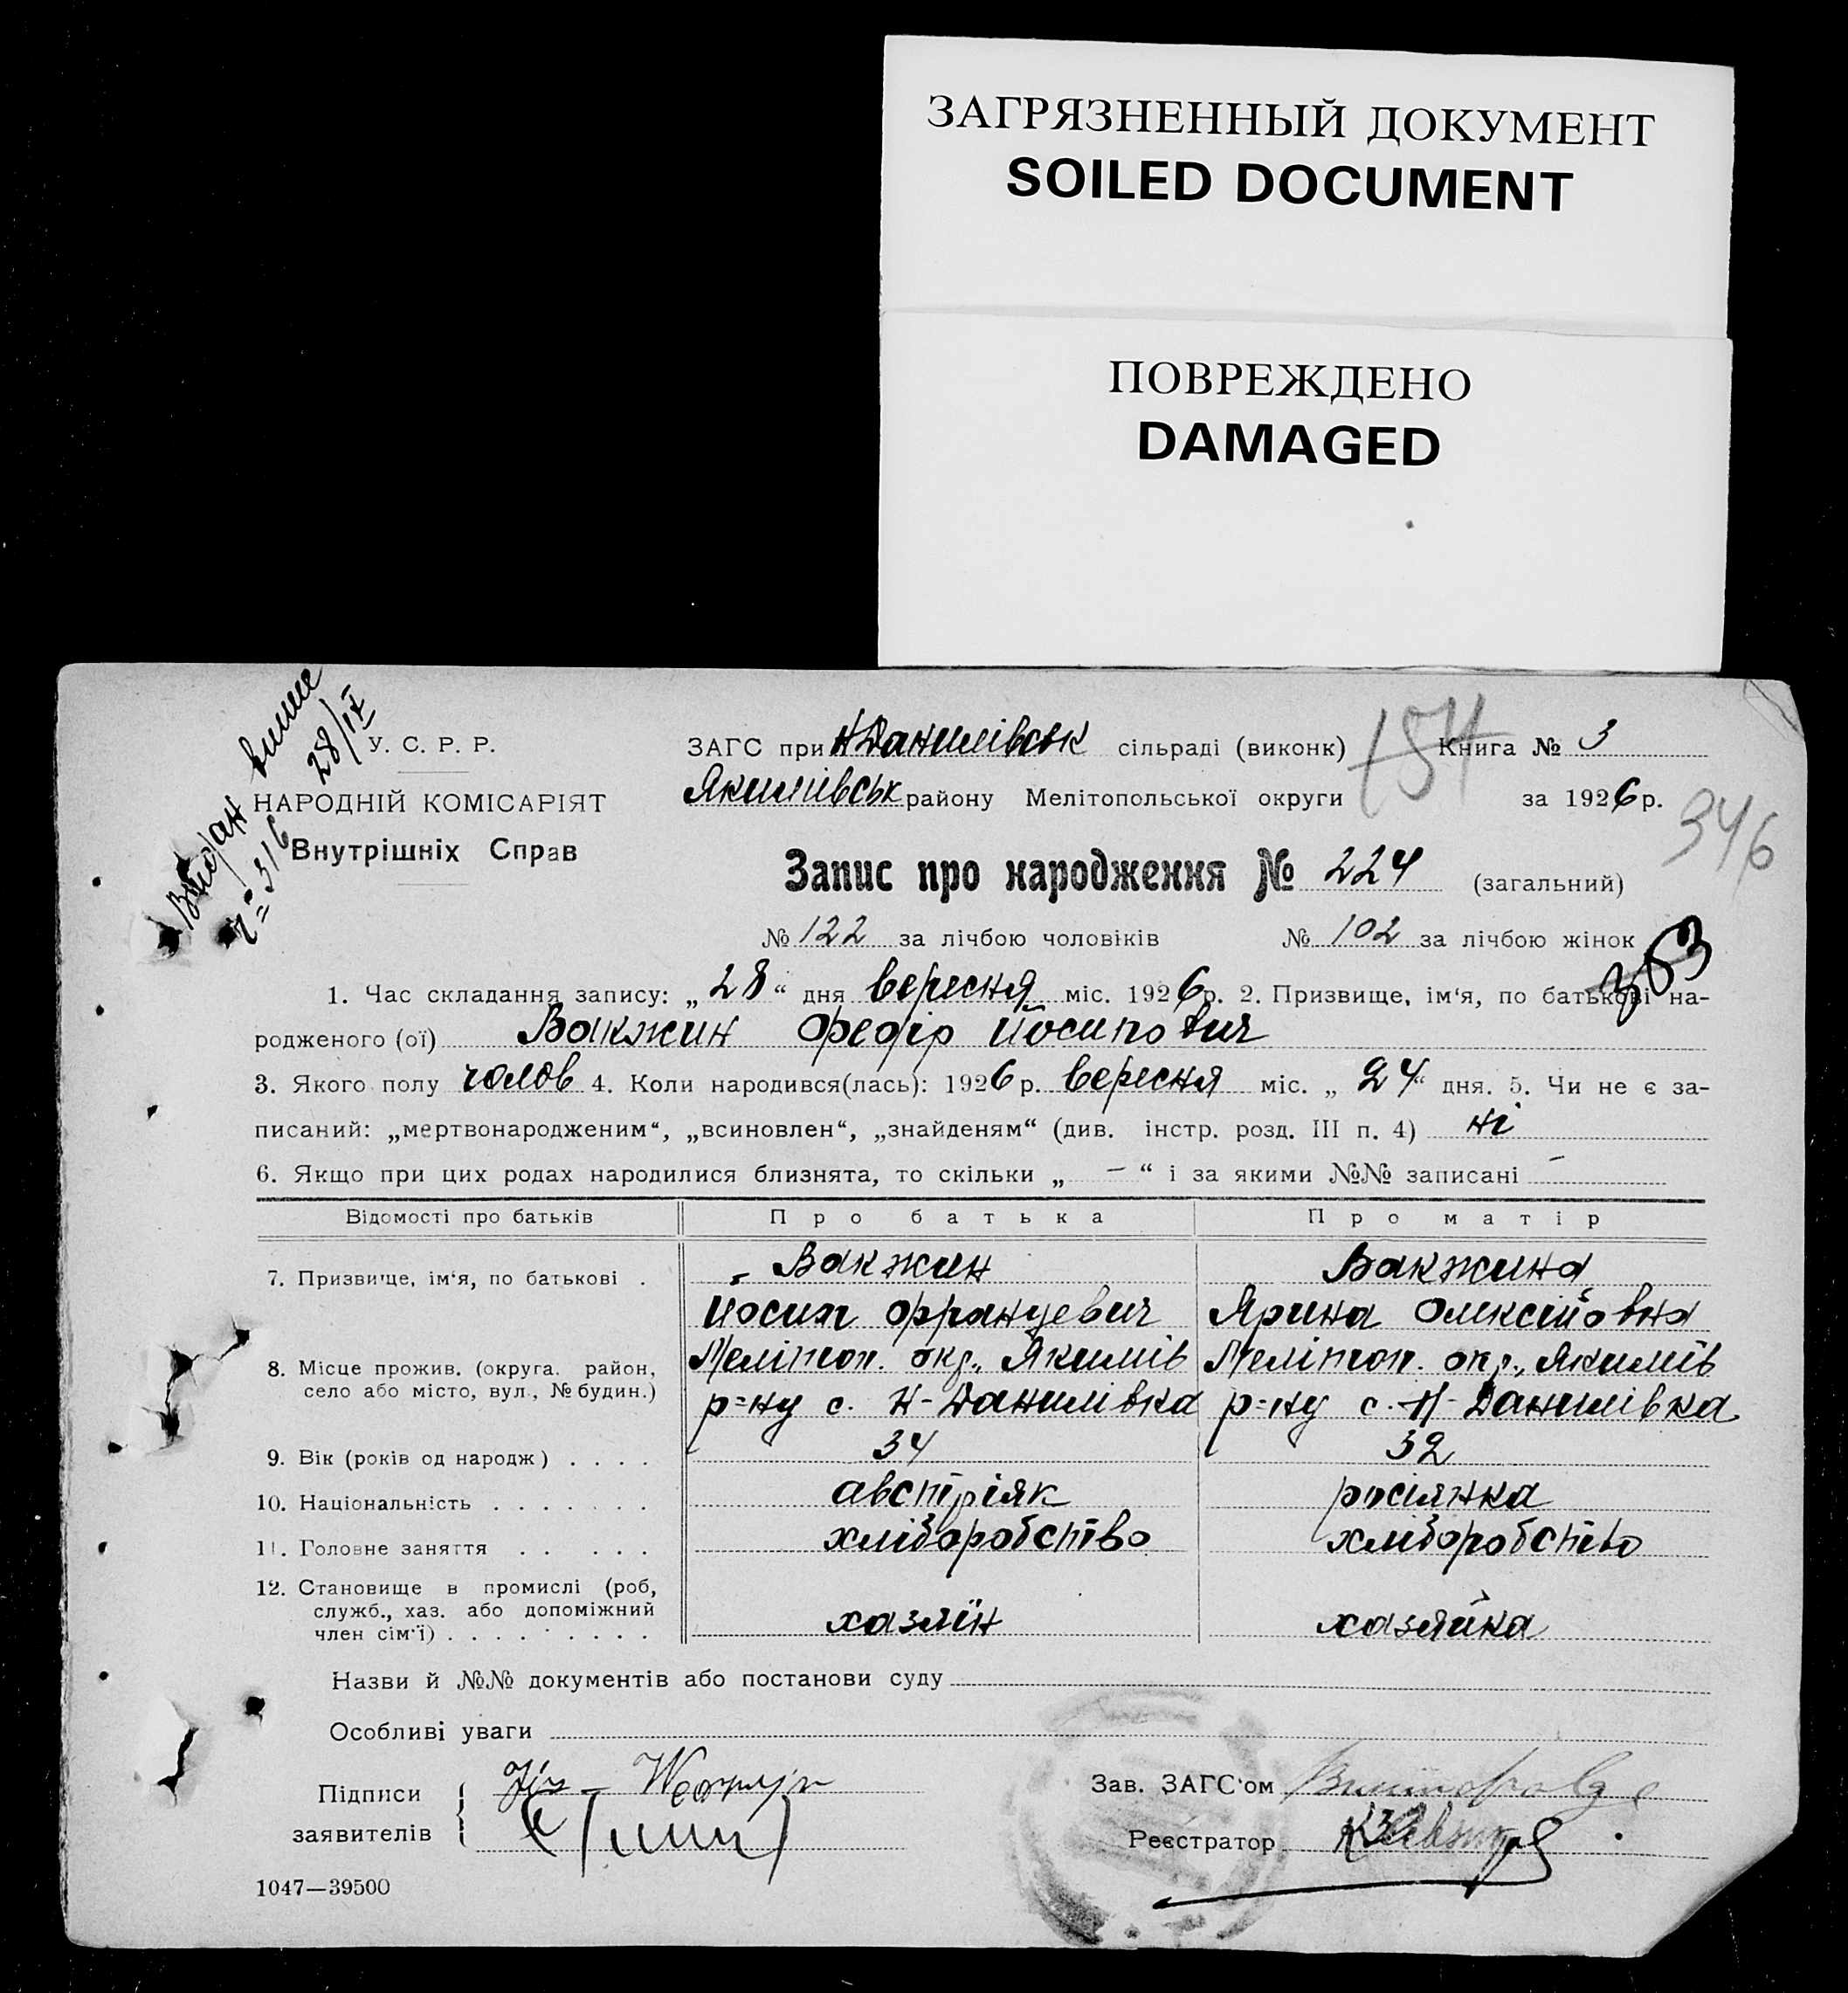 ЗАГРЯЗНЕННЫЙ ДОКУМЕНТ
SOILED DOCUMENT
ПОВРЕЖДЕНО
DAMAGED
Видан випис
28/IX
№ 316
У. С. Р. Р.
НАРОДНІЙ КОМІСАРІЯТ
Внутрішніх Справ
ЗАГС при Н Данилівськ сільраді (виконк) Книга № 3
Якимівськ району Мелітопольської округи за 1926 р.
154
346
Запис про народження № 224 (загальний)
№ 122 за лічбою чоловіків № 102 за лічбою жінок
353
1. Час складання запису: „28“ дня вересня міс. 1926 р. 2. Призвище, ім‘я, по батькові на-
родженого (ої) Вакжин Федір Йосипович
3. Якого полу чолов 4. Коли народився(лась): 1926 р. вересня міс. „24“ дня. 5. Чи не є за-
писаний: „мертвонародженим“, „всиновлен“, „знайденям“ (див. інстр. розд. III п. 4) ні
6. Якщо при цих родах народилися близнята, то скільки „ — “ і за якими №№ записані —
Відомості про батьків Про батька Про матір
7. Призвище, ім‘я, по батькові . Вакжин Вакжина
Йосип Францевич Ярина Олексійовна
8. Місце прожив. (округа, район, Мелітоп. окр., Якимів Мелітоп. окр., Якимів
село або місто, вул., № будин.) р=ну с. Н-Данилівка р=ну с. Н-Данилівка
9. Вік (років од народж) . . . . 34 32
10. Національність . . . . . . . австріяк росіянка
11. Головне заняття . . . . . хліборобство хліборобство
12. Становище в промислі (роб,
служб., хаз. або допоміжний
член сім‘ї) . . . . . . . . . хазяїн хазяйка
Назви й №№ документів або постанови суду
Особливі уваги
Підписи
заявителів
Зав. ЗАГС‘ом
Реєстратор
1047—39500